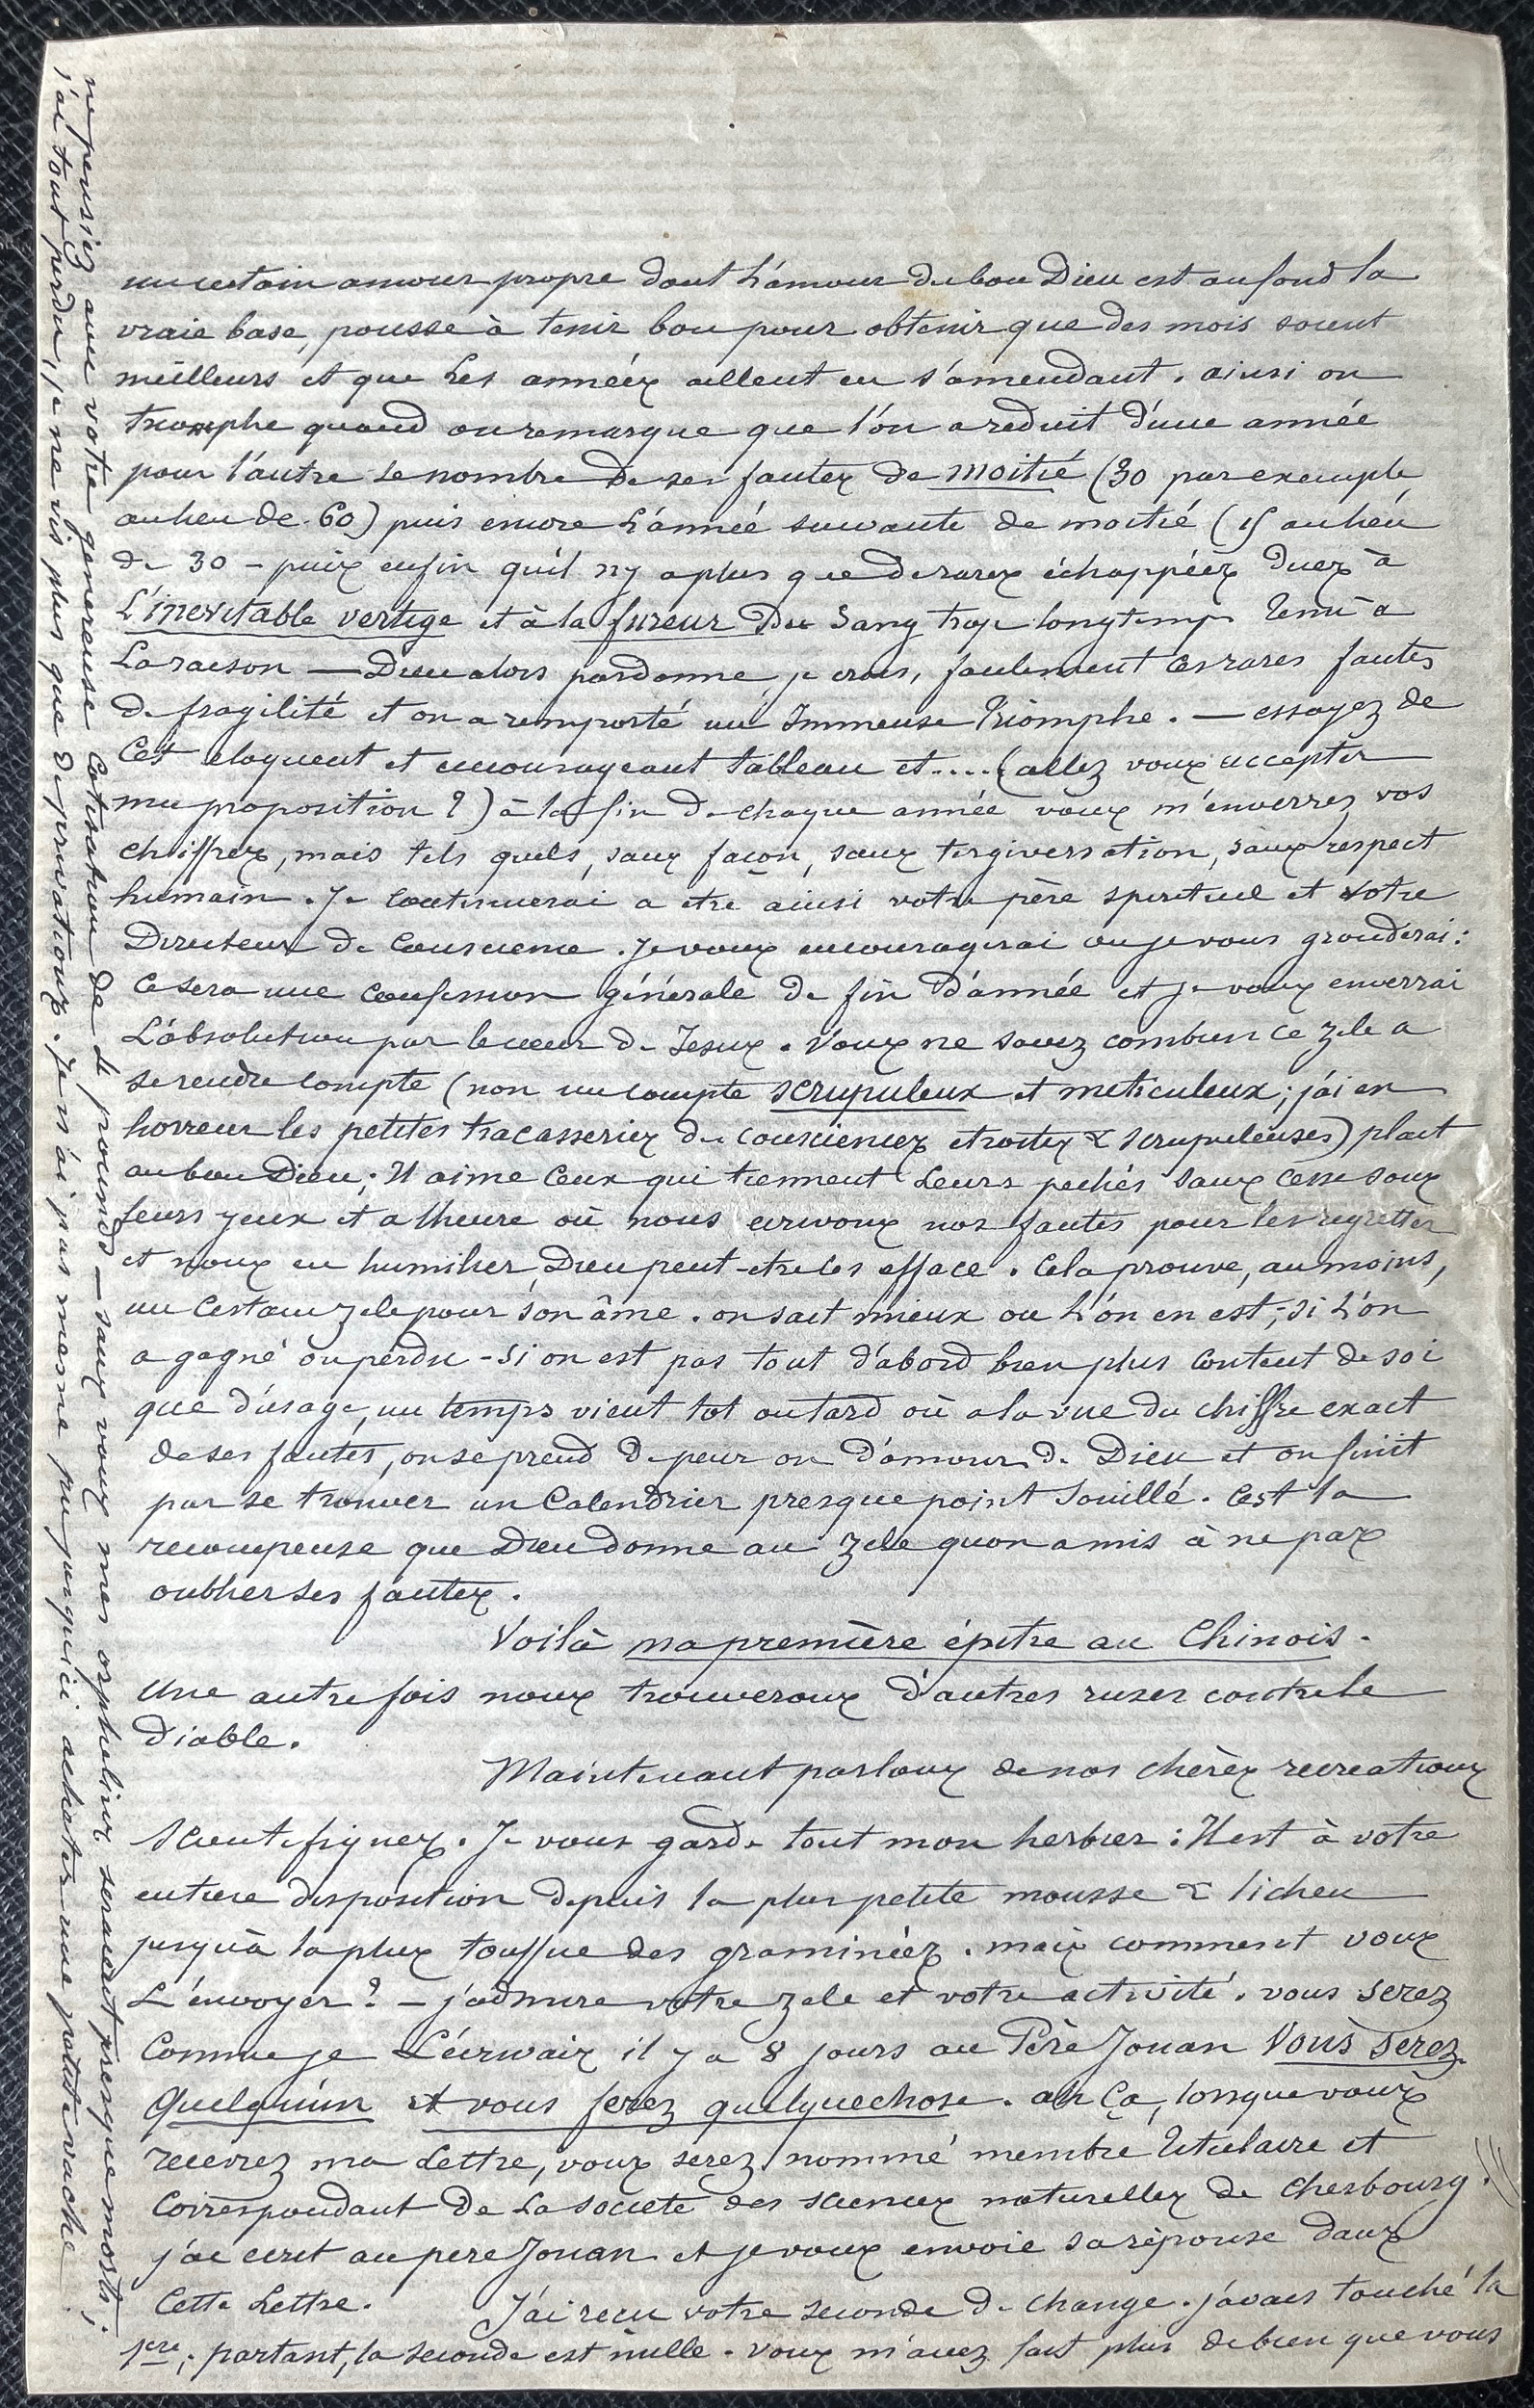 un certain amour propre dont l'amour du bon Dieu est au fond la
vraie base, pousse à tenir bon pour obtenir que des mois soient
meilleurs et que les années aillent en s'amendant. ainsi on
triomphe quand on remarque que l'on a reduit d'une année
pour l'autre le nombre de ses fautes de moitié (30 par exemple
au lieu de 60) puis encore l'année suivante de moitié (15 au lieu
de 30 - puis enfin qu'il n'y a plus que de rares échappées dues à
l'inevitable vertige et à la fureur du sang trop longtemps tenu a
la raison — Dieu alors pardonne, je crois, facilement ces rares fautes
de fragilité et on a remporté un Immense Triomphe. — essayez de
cet eloquent et encourageant tableau et.... (allez vous accepter
ma proposition ?) à la fin de chaque année vous m'enverrez vos
chiffres, mais tels quels, sans façon, sans tergiversation, sans respect
humain. Je continuerai a etre ainsi votre père spirituel et votre
Directeur de Conscience. Je vous encouragerai ou je vous gronderai:
ce sera une confession générale de fin d'année et je vous enverrai
l'absolution par le coeur de Jesus. Vous ne savez combien ce zele a
se rendre compte (non un compte scrupuleux et meticuleux; j'ai en
horreur les petites tracasseries de consciences etroites & scrupuleuses) plait
au bon Dieu; Il aime ceux qui tiennent leurs pechés sans cesse sous
leurs yeux et a l'heure où nous ecrivons nos fautes pour les regretter
et nous en humilier, Dieu peut-etre les efface. Cela prouve, au moins,
un certain zele pour son âme. on sait mieux ou l'on en est; si l'on
a gagné ou perdu - si on est pas tout d'abord bien plus content de soi
que d'usage, un temps vient tot ou tard où a la vue du chiffre exact
de ses fautes, on se prend de peur ou d'amour de Dieu et on finit
par se trouver un Calendrier presque point souillé. C'est la
recompense que Dieu donne au zele qu'on a mis à ne pas
oublier ses fautes.
Voilà ma première épitre au Chinois.
Une autre fois nous trouverons d'autres ruses contre le
Diable.
Maintenant parlons de nos chères recreations
scientifiques. Je vous garde tout mon herbier: Il est à votre
entiere disposition depuis la plus petite mousse & lichen
jusqu'à la plus touffue des graminées. mais comment vous
l'envoyer? — j'admire votre zele et votre activité. vous serez
comme je l'écrivais il y a 8 jours au Père Jouan Vous serez
Quelqu'un et vous ferez quelque chose. ah ça, lorsque vous
recevrez ma lettre, vous serez nommé membre titulaire et
correspondant de la societe des sciences naturelles de Cherbourg.
j'ai ecrit au pere Jouan et je vous envoie sa réponse dans
cette lettre. J'ai recu votre seconde de change. j'avais touché la
1ere; partant, la seconde est nulle. vous m'avez fait plus de bien que vous
ne pensiez avec votre genereuse cotisation de pounds — sans vous mes orphelins seraient presque morts;
j'ai tout perdu, je ne vis plus que de privations. Je n'ai pas mesme pu jusqu'ici acheter une petite vache